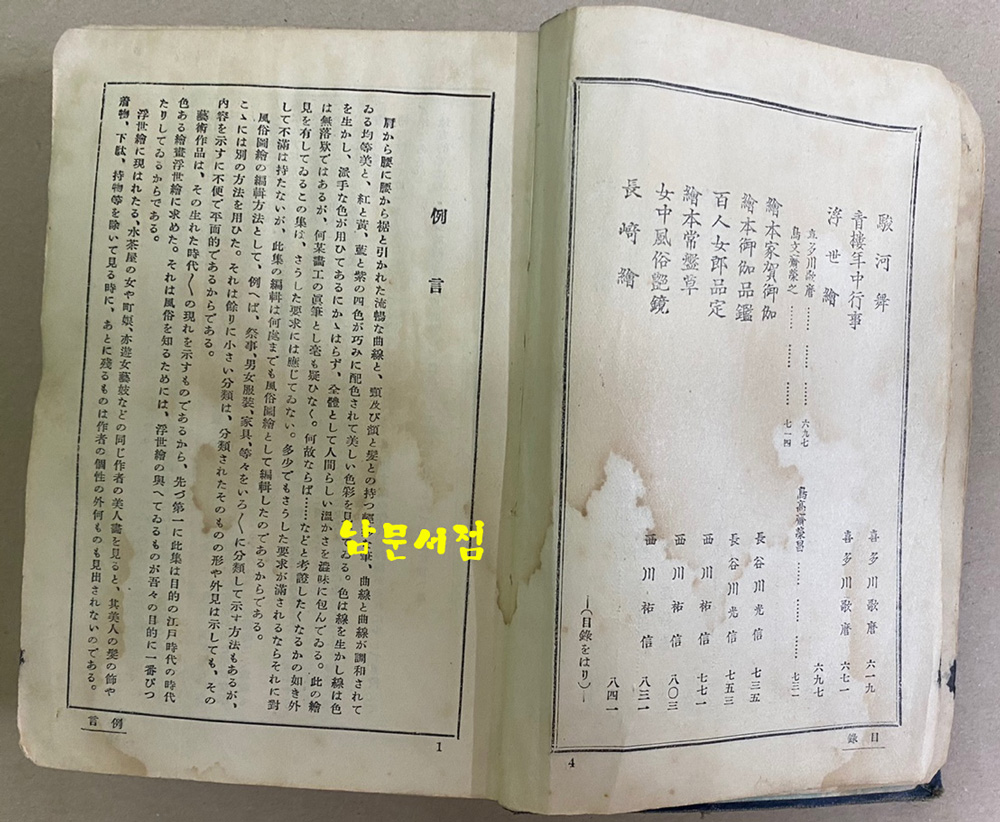 駿河舞 喜多川歌麿 六一九
青樓年中行事 喜多川歌麿 六七一
浮世繪 六九七
喜多川歌麿 ……… ……… 六九七
鳥文齋榮之 ……… ……… 七一四
鳥高齋榮昌 ……… ……… 七三一
繪本家賀御伽 長谷川光信 七三五
繪本御伽品鑑 長谷川光信 七五三
百人女郎品定 西川祐信 七七一
繪本常盤草 西川祐信 八〇三
女中風俗艶鏡 西川祐信 八三一
長崎繪 八四一
―(目錄をはり)―
目錄
4
例言
肩から腰に腰から裾と引かれた流暢な曲線と、頸及び顔と髮との持つ 筆、曲線と曲線が調和されて
ゐる均等美と、紅と黃、藍と紫の四色が巧みに配色されて美しい色彩を見 ゐる。色は線を生かし線は色
を生かし、派手な色が用ひてあるにかゝはらず、全體として人間らしい溫かさを澁味に包んでゐる。此の繪
は無落欵ではあるが、何某畫工の眞筆とし毫も疑ひなく。何故ならば……などと考證したくなるかの如き外
見を有してゐるこの集は、さうした要求には應じてゐない。多少でもさうした要求が滿されるならそれに對
して不滿は持たないが、此集の編輯は何處までも風俗圖繪として編輯したのであるからである。
風俗圖繪の編輯方法として、例へば、祭事、男女服裝、家具、等々をいろ〱に分類して示す方法もあるが、
こゝには別の方法を用ひた。それは餘りに小さい分類は、分類されたそのものの形や外見は示しても、その
內容を示すに不便で平面的であるからである。
藝術作品は、その生れた時代〱の現れを示すものであるから、先づ第一に此集は目的の江戶時代の時代
色ある繪畫浮世繪に求めた。それは風俗を知るためには、浮世繪の與へてゐるものが吾々の目的に一番ぴつ
たりしてゐるからである。
浮世繪に現はれたる、水茶屋の女や町娘、亦遊女藝妓などの同じ作者の美人畫を見ると、其美人の髮の飾や
着物、下駄、持物等を除いて見る時に、あとに殘るものは作者の個性の外何ものも見出されないのである。
例言
1
남문서점